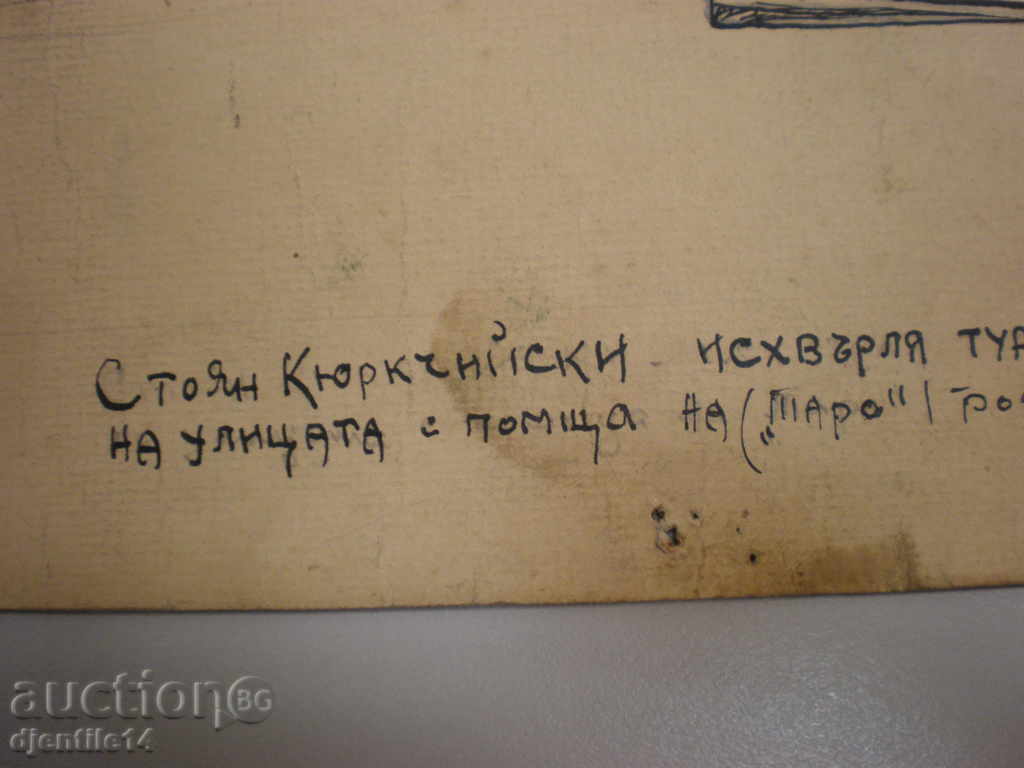 Стоян Кюркчийски исхвърля
на улицата с помща на („Таро“/
auction BG
djentile14